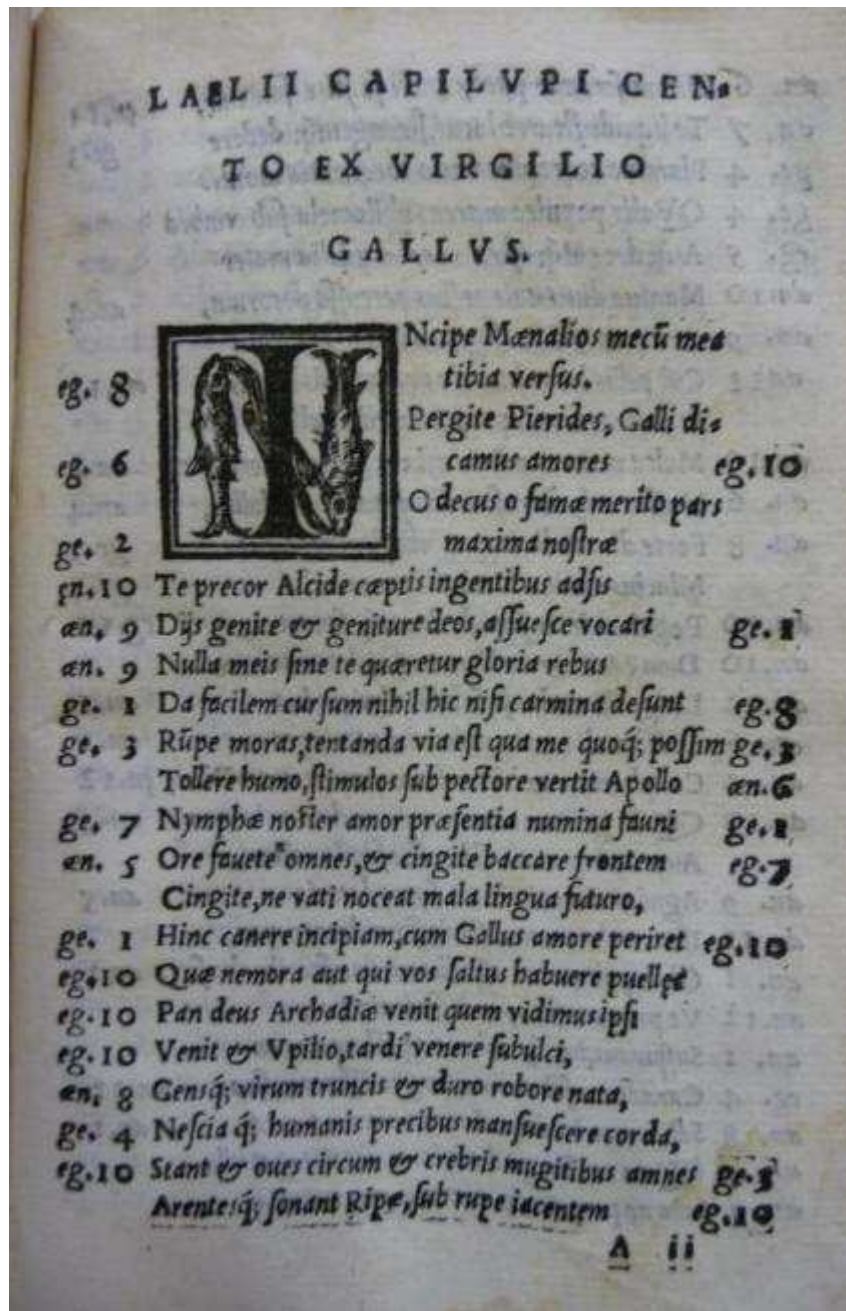 LAELII CAPILVPI CEN-
TO EX VIRGILIO
GALLVS.
INcipe Mænalios mecū mea
eg. 8 tibia versus.
Pergite Pierides, Galli di-
eg. 6 camus amores eg. 10
O decus o famæ merito pars
ge. 2 maxima nostræ
en. 10 Te precor Alcide cæptis ingentibus adsis
æn. 9 Dijs genite & geniture deos, assuesce vocari ge. 1
æn. 9 Nulla meis sine te quæretur gloria rebus
ge. 1 Da facilem cursum nihil hic nisi carmina desunt eg. 8
ge. 3 Rūpe moras, tentanda via est qua me quoq; possim ge. 3
Tollere humo, stimulos sub pectore vertit Apollo æn. 6
ge. 7 Nymphæ noster amor præsentia numina fauni ge. 1
æn. 5 Ore fauete omnes, & cingite baccare frontem eg. 7
Cingite, ne vati noceat mala lingua futuro,
ge. 1 Hinc canere incipiam, cum Gallus amore periret eg. 10
eg. 10 Quæ nemora aut qui vos saltus habuere puellæ
eg. 10 Pan deus Archadiæ venit quem vidimus ipsi
eg. 10 Venit & Vpilio, tardi venere subulci,
æn. 8 Gensq; virum truncis & duro robore nata,
ge. 4 Nescia q; humanis precibus mansuescere corda,
eg. 10 Stant & oues circum & crebris mugitibus amnes ge. 3
Arentesq; sonant Ripæ, sub rupe iacentem eg. 10
A ii